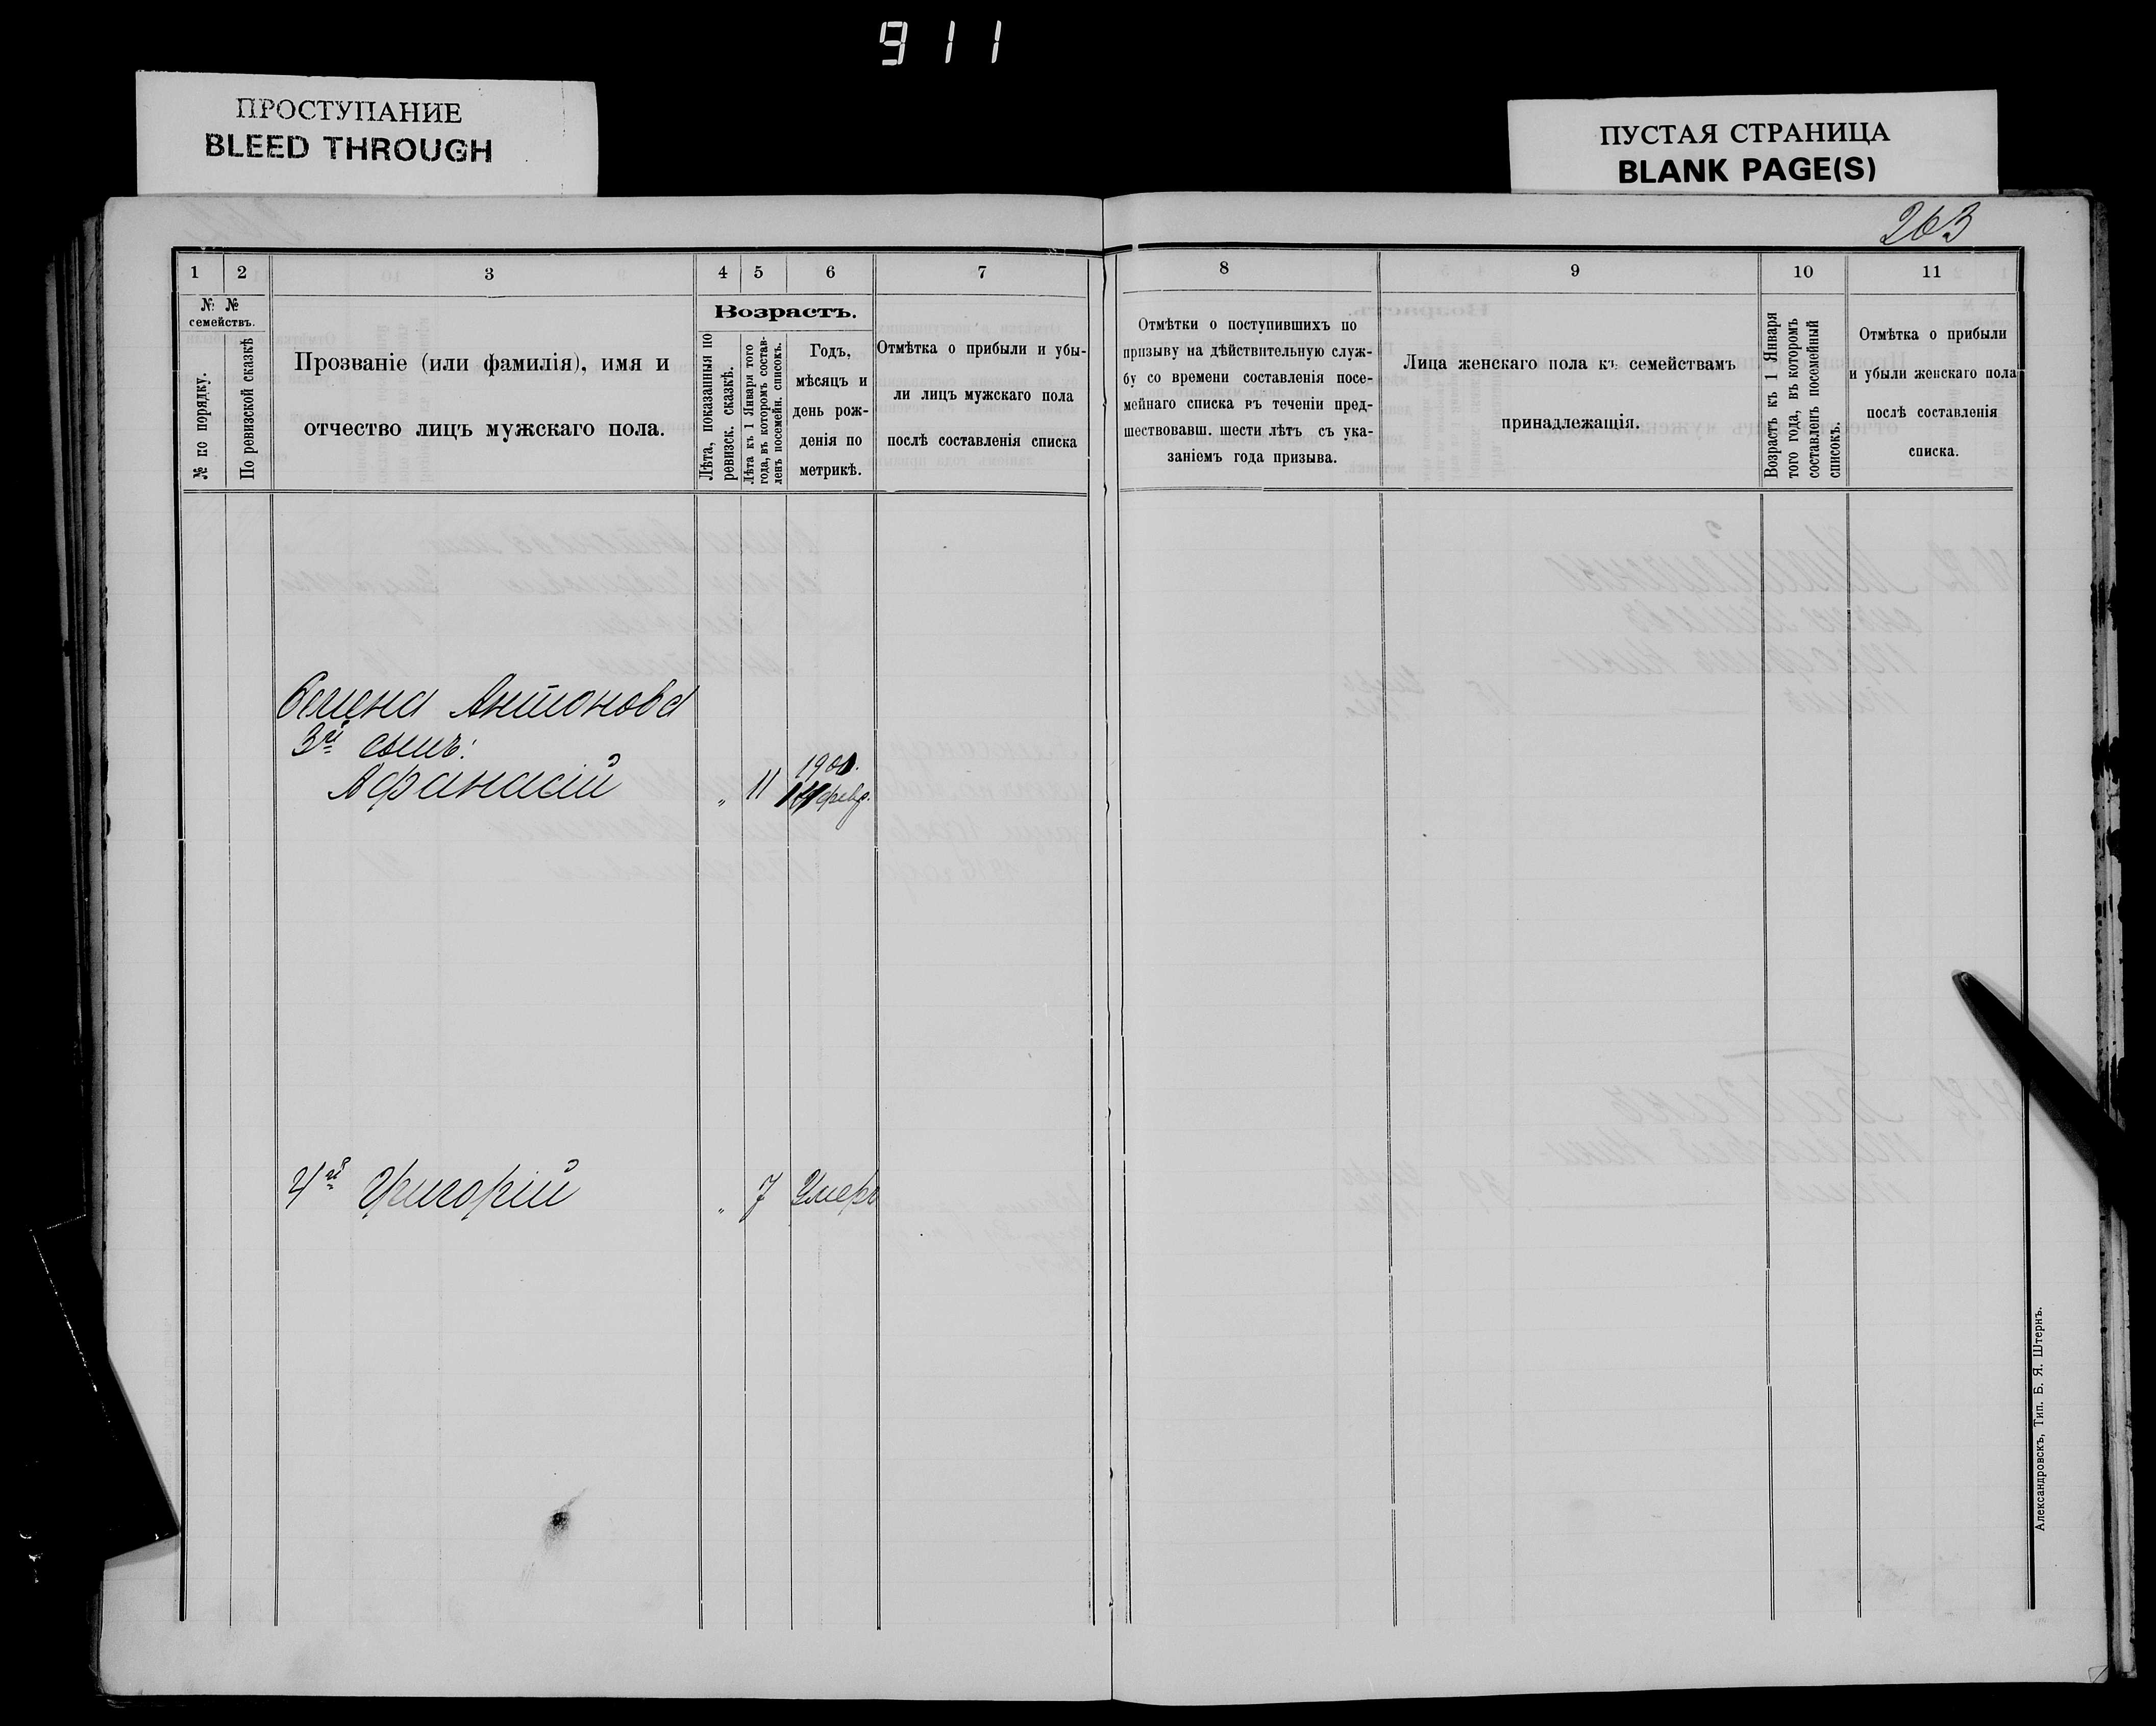 911
ПРОСТУПАНИЕ
BLEED THROUGH
ПУСТАЯ СТРАНИЦА
BLANK PAGE(S)
263
1
2
3
4
5
6
7
№ №
семействъ.
№ по порядку.
По ревизской сказкѣ
Прозваніе (или фамилія), имя и
отчество лицъ мужскаго пола.
Возрастъ.
Лѣта, показанныя по
ревизск. сказкѣ.
Лѣта къ 1 Января того
года, въ которомъ состав-
ленъ посемейн. списокъ.
Годъ,
мѣсяцъ и
день рож-
денія по
метрикѣ.
Отмѣтка о прибыли и убы-
ли лицъ мужскаго пола
послѣ составленія списка
8
9
10
11
Отмѣтки о поступившихъ по
призыву на дѣйствительную служ-
бу со времени составленія посе-
мейнаго списка въ теченіи пред-
шествовавш. шести лѣтъ съ ука-
заніемъ года призыва.
Лица женскаго пола къ семействамъ
принадлежащія.
Возрастъ къ 1 Января
того года, въ которомъ
составленъ посемейный
списокъ.
Отмѣтка о прибыли
и убыли женскаго пола
послѣ составленія
списка.
Семена Антонова
3й сынъ:
Афанасій „ 11
февр.
4й Григорій „ 7 Умеръ
Александровскъ, Тип. Б. Я. Штернъ.